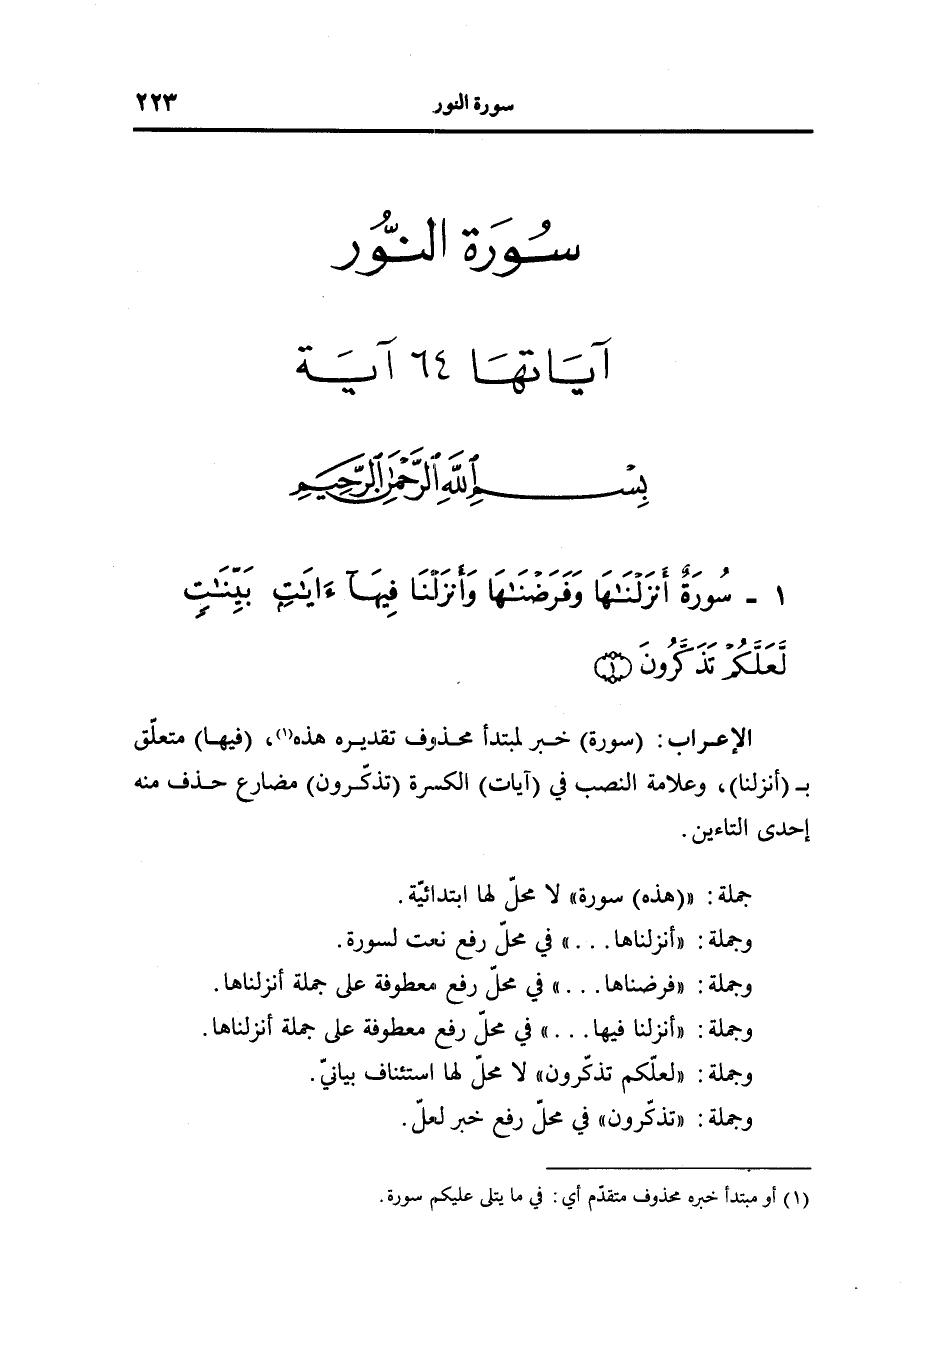 سورة النور ٢٢٣
سُورَة النُّور
آيَاتهَا ٦٤ آيَة
بِسْمِ اللَّهِ الرَّحْمَٰنِ الرَّحِيمِ
١ - سُورَةٌ أَنزَلْنَٰهَا وَفَرَضْنَٰهَا وَأَنزَلْنَا فِيهَآ ءَايَٰتٍۭ بَيِّنَٰتٍ
لَّعَلَّكُمْ تَذَكَّرُونَ ﴿١﴾
الإعراب: (سورة) خبر لمبتدأ محذوف تقديره هذه(١)، (فيها) متعلّق
بـ (أنزلنا)، وعلامة النصب في (آيات) الكسرة (تذكّرون) مضارع حذف منه
إحدى التاءين.
جملة: «(هذه) سورة» لا محلّ لها ابتدائيّة.
وجملة: «أنزلناها...» في محلّ رفع نعت لسورة.
وجملة: «فرضناها...» في محلّ رفع معطوفة على جملة أنزلناها.
وجملة: «أنزلنا فيها...» في محلّ رفع معطوفة على جملة أنزلناها.
وجملة: «لعلّكم تذكّرون» لا محلّ لها استئناف بيانيّ.
وجملة: «تذكّرون» في محلّ رفع خبر لعلّ.
(١) أو مبتدأ خبره محذوف متقدّم أي: في ما يتلى عليكم سورة.